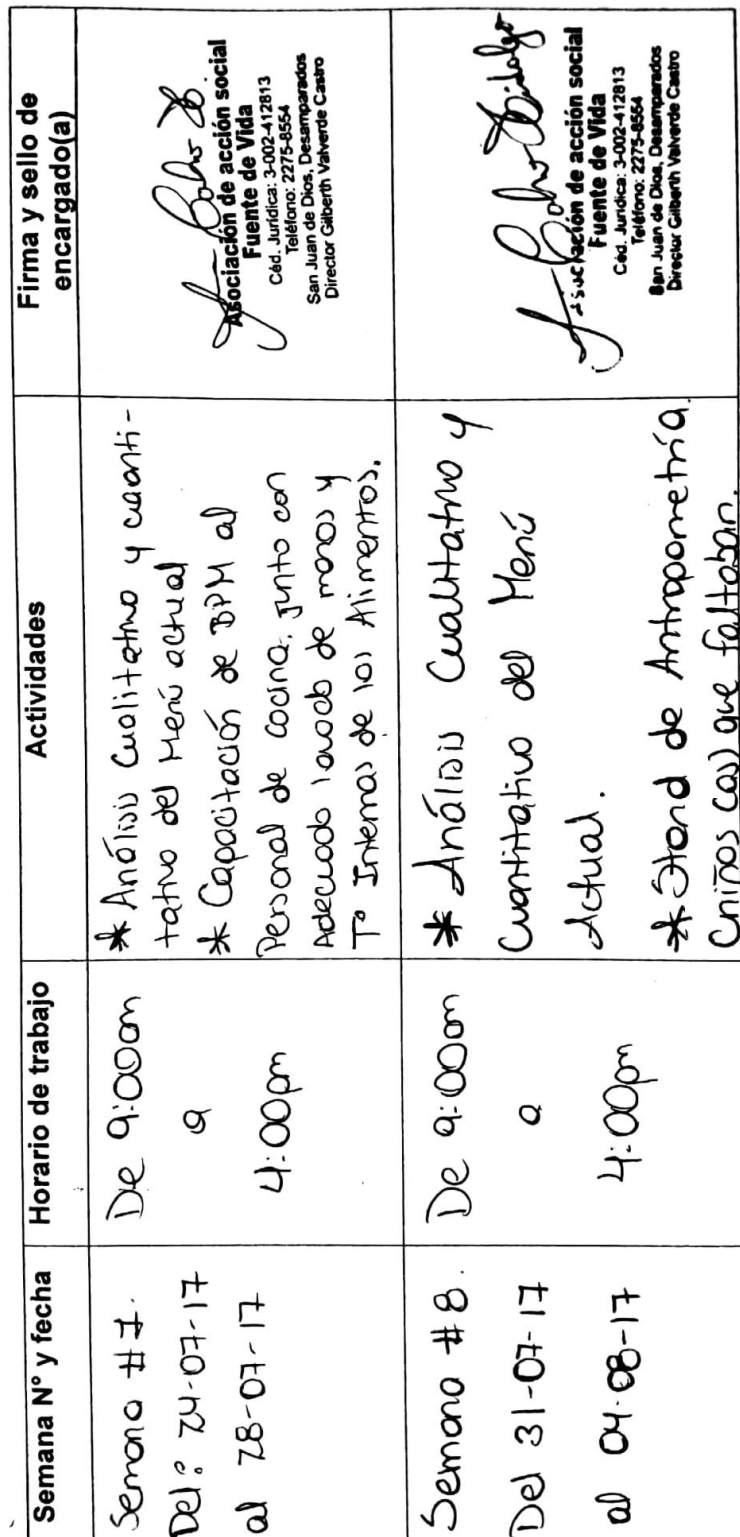 Semana N° y fecha
Horario de trabajo
Actividades
Firma y sello de
encargado(a)
Semana #7.
Del: 24-07-17
al 28-07-17
De 9:00am
a
4:00pm
* Análisis Cualitativo y cuanti-
tativo del Menú actual
* Capacitación de BPM al
Personal de cocina, junto con
Adecuado lavado de manos y
T° Internas de los Alimentos.
Asociación de acción social
Fuente de Vida
Céd. Jurídica: 3-002-412813
Teléfono: 2275-8554
San Juan de Dios, Desamparados
Director Gilberth Valverde Castro
Semana #8.
Del 31-07-17
al 04-08-17
De 9:00am
a
4:00pm
* Análisis Cualitativo y
Cuantitativo del Menú
Actual.
* Stand de Antropometría
Cniños (as) que faltaban.
Asociación de acción social
Fuente de Vida
Céd. Jurídica: 3-002-412813
Teléfono: 2275-8554
San Juan de Dios, Desamparados
Director Gilberth Valverde Castro